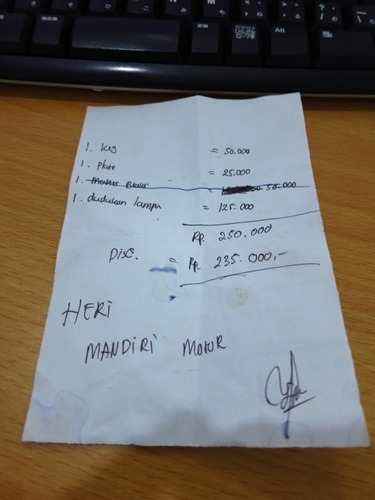 1. = 50.000
1. = 25.000
1. Master = 50.000
1. dudukan lampu = 125.000
Rp. 250.000
Disc. = Rp. 235.000,-
HERI
MANDIRI MOTOR